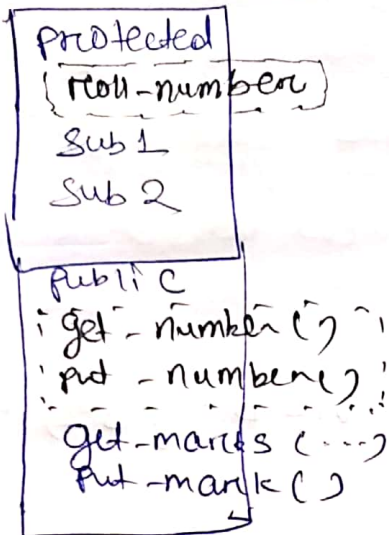 protected
roll-number
Sub 1
Sub 2
public
get-number()
put-number()
get-marks (...)
put-mark()